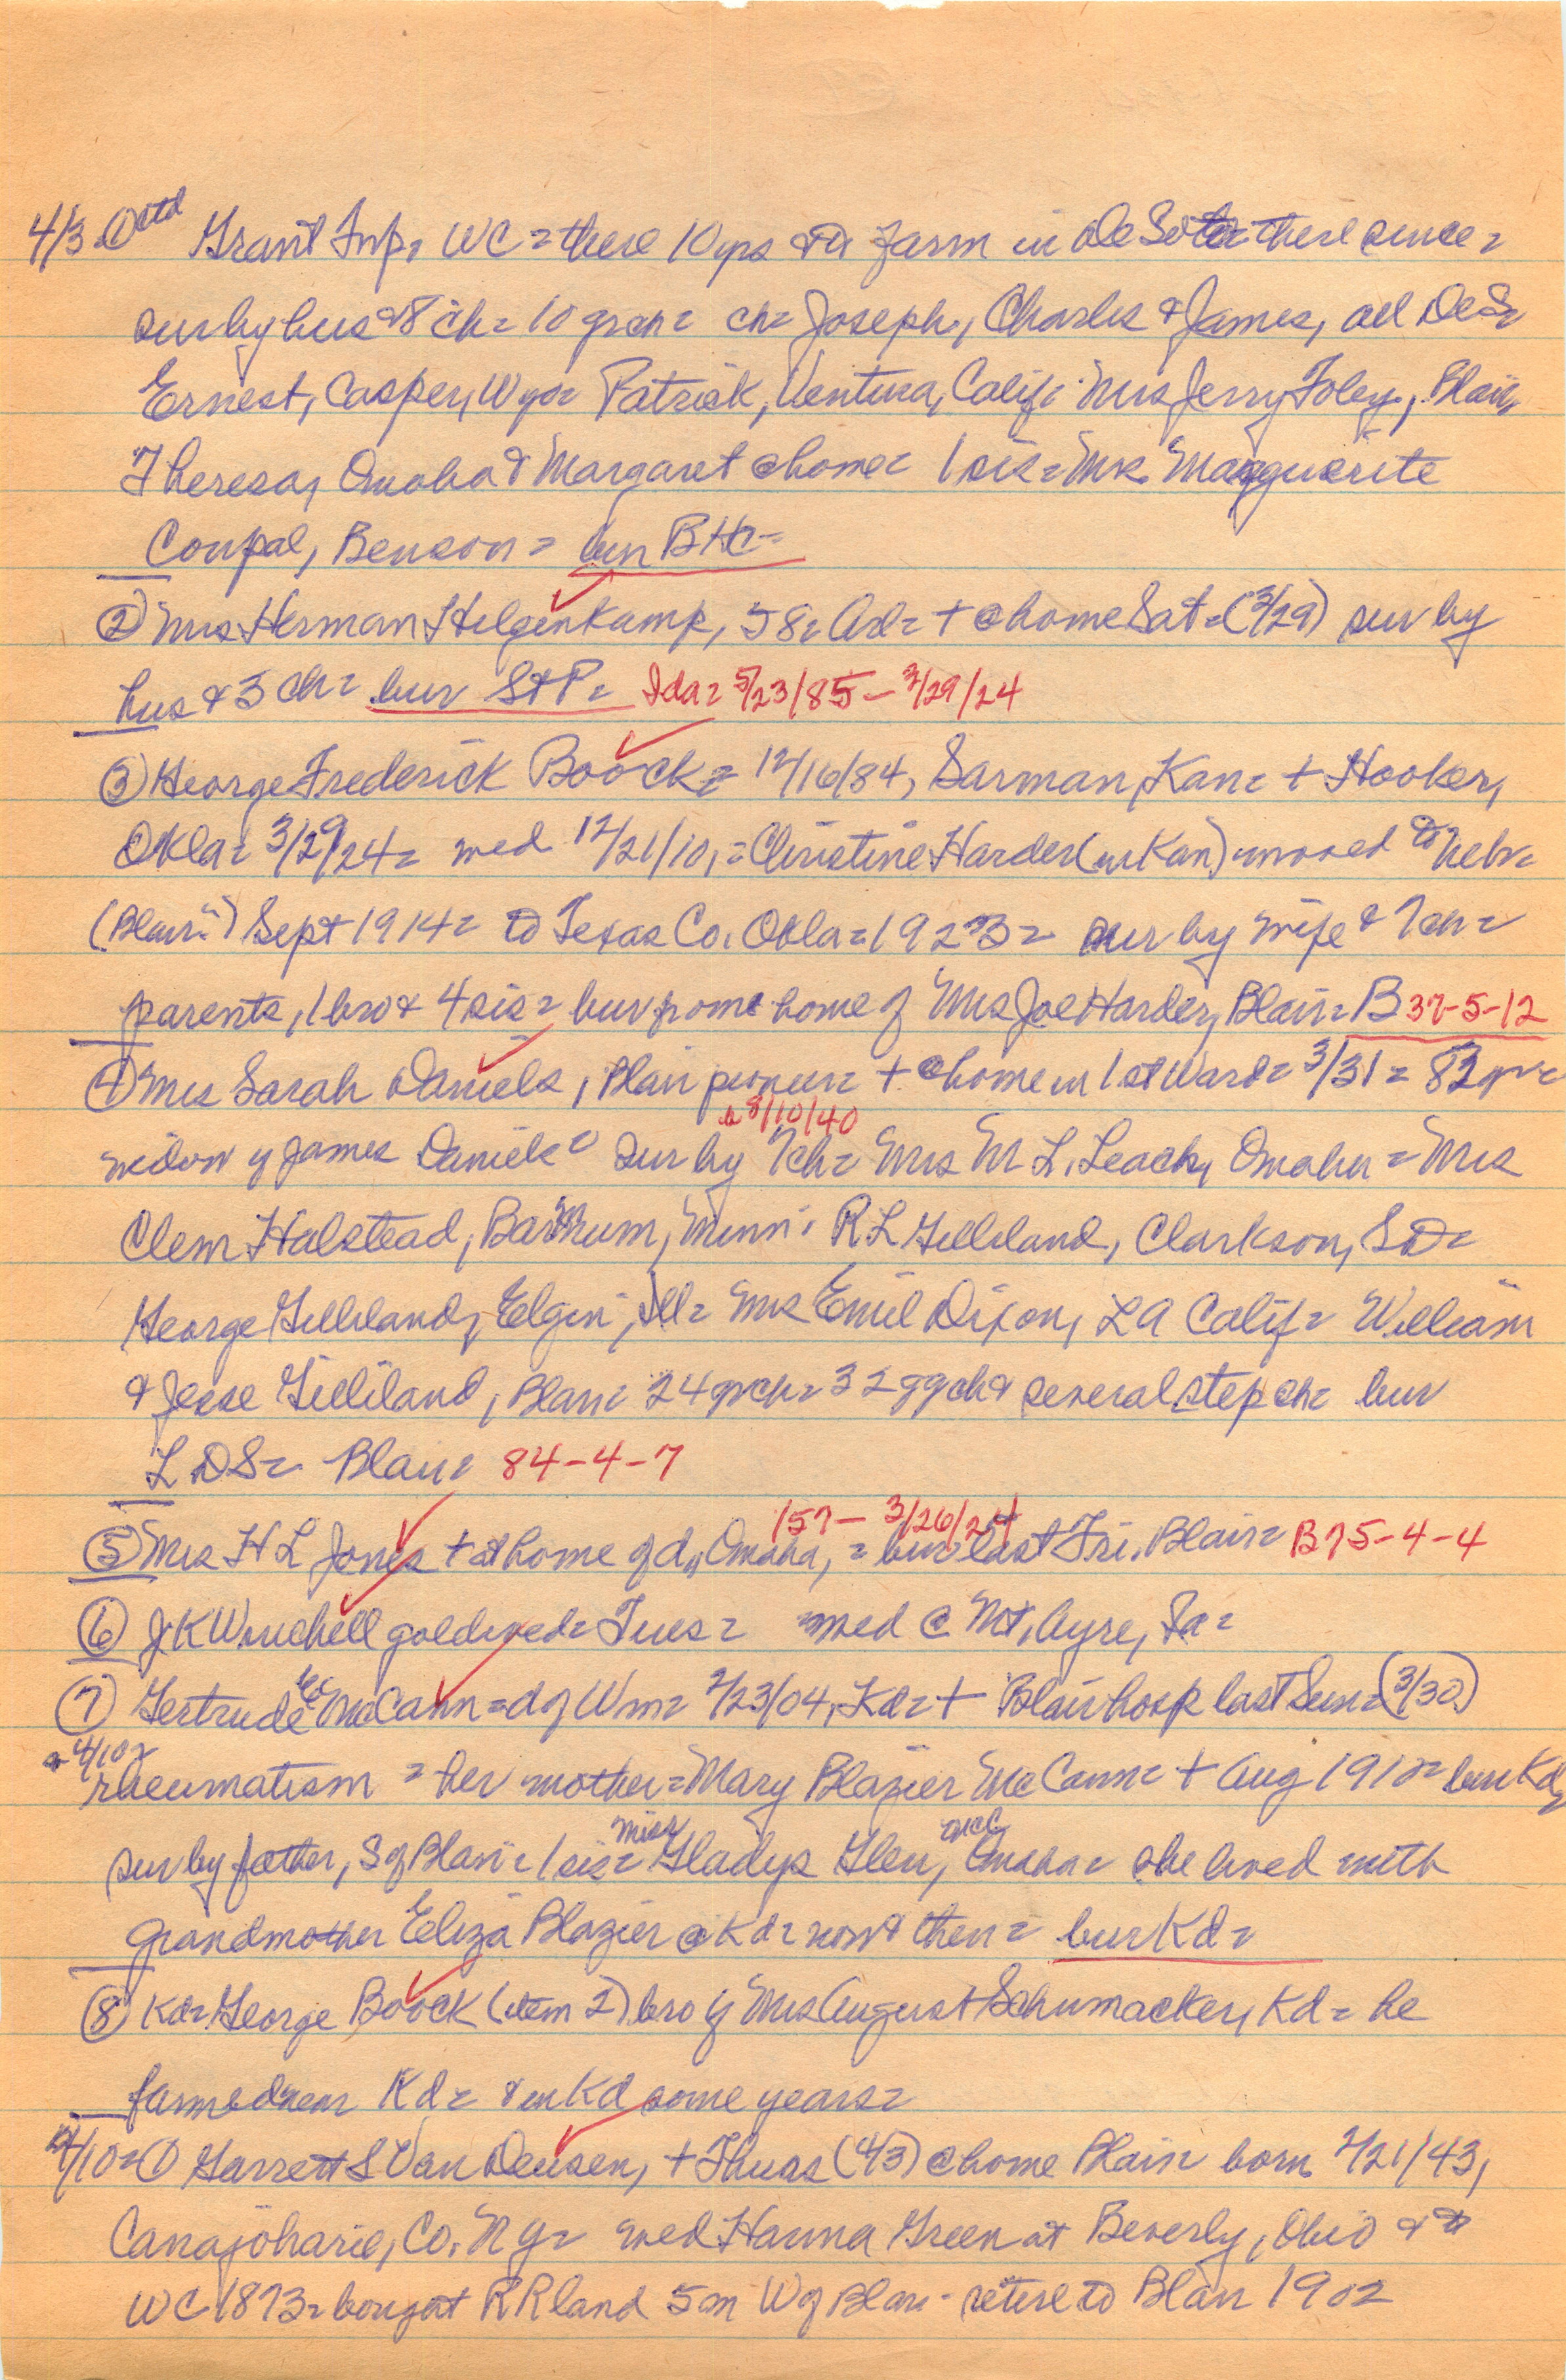 4/3 ① ctd Grant Twp, WC = there 10 yrs & to farm in DeSoto = there since =
sur by hus & 8 ch = 10 grch = ch = Joseph, Charles & James, all DeS =
Ernest, Casper, Wyo = Patrick, Ventura, Calif = Mrs Jerry Foley, Blair,
Theresa, Omaha & Margaret @ home = 1 sis = Mrs. Marguerite
Coupal, Benson = bur BHC =
② Mrs Herman Hilgenkamp, 58 = Arl = + @ home Sat = (3/29) sur by
hus & 3 ch = bur St P = Ida = 5/23/85 - 3/29/24
③ George Frederick Boock = 12/16/84, Sarman, Kan = + Hooker,
Okla = 3/29/24 = wed 12/21/10, = Christine Harder (in Kan) moved to Nebr =
(Blair) Sept 1914 = to Texas Co. Okla = 1923 = sur by wife & 7 ch =
parents, 1 bro & 4 sis = bur from home of Mrs Joe Harder, Blair = B 37-5-12
④ Mrs Sarah Daniels, Blair pioneer = + @ home in 1st Ward = 3/31 = 83 yr =
b 8/10/40
widow of James Daniels = sur by 7 ch = Mrs M L. Leach, Omaha = Mrs
Clem Halstead, Barnum, Minn = R L Gilliland, Clarkson, SD =
George Gilliland, Elgin, Ill = Mrs Emil Dixon, LA Calif = William
& Jesse Gilliland, Blair = 24 grch = 32 ggch & several step ch = bur
LDS = Blair = 84-4-7
157 - 3/26/24
⑤ Mrs H L Jones + at home of d, Omaha, = bur last Fri. Blair = B 75-4-4
⑥ J K Winchell gold wed = Tues = wed @ Mt. Ayre, Ia =
⑦ Gertrude McCann = d of Wm = 2/23/04, Kd = + Blair hosp last Sun = (3/30)
4/10 =
rheumatism = her mother = Mary Blazier McCann = + Aug 1910 = bur Kd,
Miss McC
sur by father, S of Blair = 1 sis = Gladys Glen, Omaha = she lived with
grandmother Eliza Blazier @ Kd = now & then = bur Kd =
⑧ Kd = George Boock (item 2) bro of Mrs August Schumacker, Kd = he
farmed near Kd = & in Kd some years =
4/10 = ① Garrett S Van Deusen, + Thurs (4/3) @ home Blair = born 2/21/43,
Canajoharie, Co. N Y = wed Hanna Green at Beverly, Ohio & to
WC 1873 = bought RR land 5 m W of Blair - retire to Blair 1902